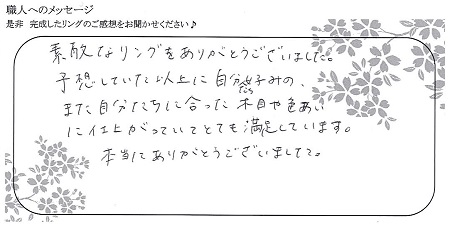 職人へのメッセージ
是非 完成したリングのご感想をお聞かせください♪
素敵なリングをありがとうございました。
予想していた以上に自分たち好みの、
また自分たちに合った木目や色あい
に仕上がっていてとても満足しています。
本当にありがとうございました。